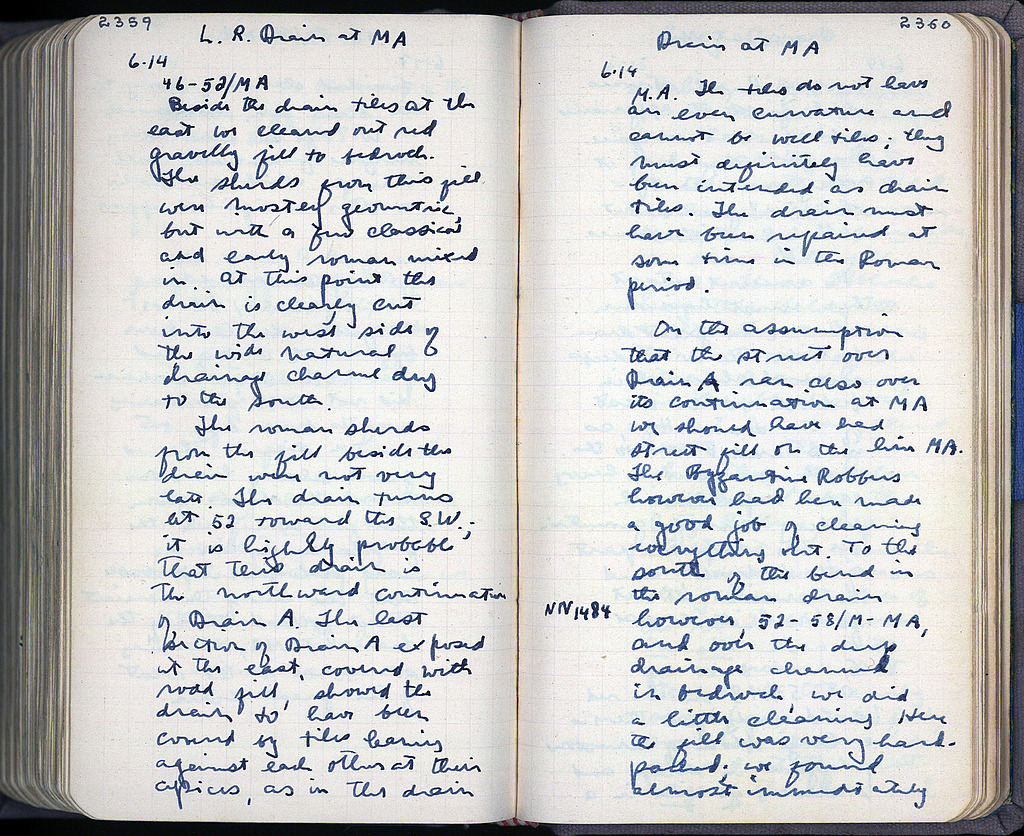 2359
L. R. Drain at MA
6.14
46-52/MA
Beside the drain tiles at the
east we cleared out red
gravelly fill to bedrock.
The sherds from this fill
were mostly geometric,
but with a few classical
and early roman mixed
in. At this point the
drain is clearly cut
into the west side of
the wide natural
drainage channel dug
to the south.
The roman sherds
from the fill beside the
drain were not very
late. The drain turns
at 52 toward the S.W.;
it is highly probable
that this drain is
the northward continuation
of Drain A. The last
section of Drain A exposed
at the east, covered with
road fill, showed the
drain to have been
covered by tiles leaning
against each other at their
apices, as in the drain
2360
Drain at MA
6.14
M.A. The tiles do not have
an even curvature and
cannot be well tiles; they
must definitely have
been intended as drain
tiles. The drain must
have been repaired at
some time in the Roman
period.
On the assumption
that the street over
Drain A ran also over
its continuation at MA
we should have had
street fill on the line MA.
The Byzantine Robbers
however had been made
a good job of cleaning
everything out. To the
south of the bend in
the roman drain
NN1484
however, 52-58/M-MA,
and over the deep
drainage channel
in bedrock we did
a little cleaning. Here
the fill was very hard-
packed; we found
almost immediately